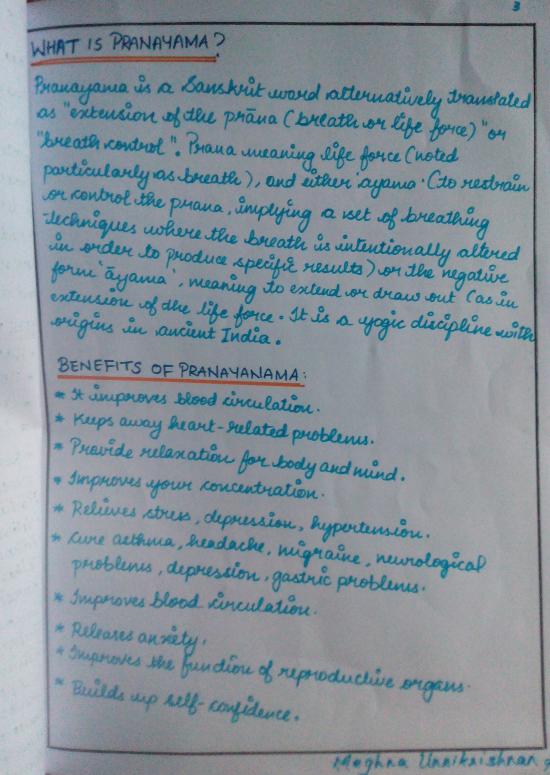 3
WHAT IS PRANAYAMA?
Pranayama is a Sanskrit word alternatively translated
as "extension of the prāna (breath or life force)" or
"breath control". Prana meaning life force (noted
particularly as breath), and either 'ayama' (to restrain
or control the prana, implying a set of breathing
techniques where the breath is intentionally altered
in order to produce specific results) or the negative
form 'āyama', meaning to extend or draw out (as in
extension of the life force. It is a yogic discipline with
origins in ancient India.
BENEFITS OF PRANAYANAMA:
* It improves blood circulation.
* Keeps away heart-related problems.
* Provide relaxation for body and mind.
* Improves your concentration.
* Relieves stress, depression, hypertension.
* Cure asthma, headache, migraine, neurological
problems, depression, gastric problems.
* Improves blood circulation.
* Releases anxiety.
* Improves the function of reproductive organs.
* Builds up self-confidence.
Meghna Unnikrishnan